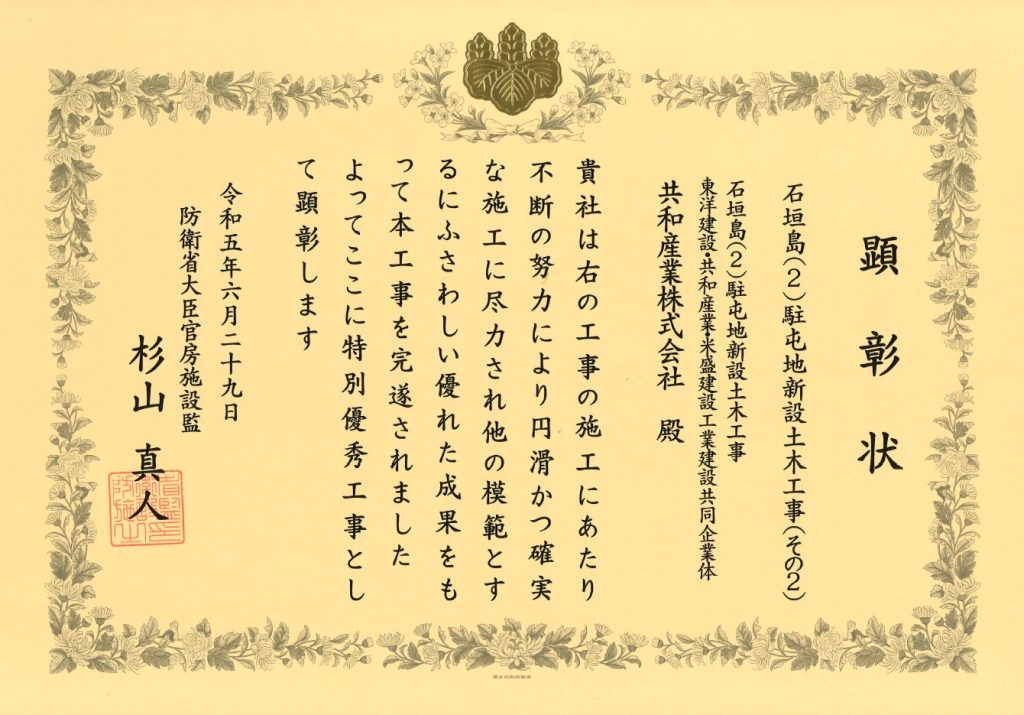 顕彰状
石垣島（２）駐屯地新設土木工事（その２）
石垣島（２）駐屯地新設土木工事
東洋建設・共和産業・米盛建設工業建設共同企業体
共和産業株式会社 殿
貴社は右の工事の施工にあたり
不断の努力により円滑かつ確実
な施工に尽力され他の模範とす
るにふさわしい優れた成果をも
って本工事を完遂されました
よってここに特別優秀工事とし
て顕彰します
令和五年六月二十九日
防衛省大臣官房施設監
杉山 真人